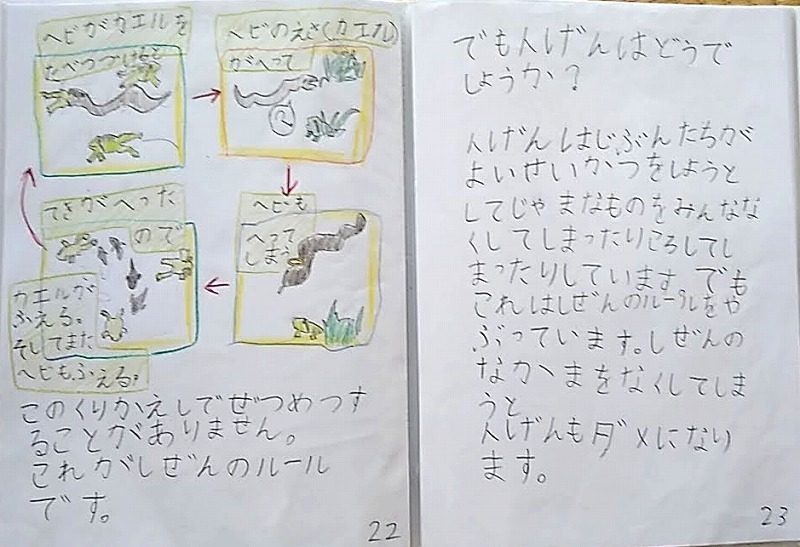 ヘビがカエルを
たべつづけると
ヘビのえさ(カエル)
がへって
ヘビも
へって
しまう
てきがへった
ので
カエルが
ふえる。
そしてまた
ヘビもふえる。
このくりかえしでぜつめつす
ることがありません。
これがしぜんのルール
です。
22
でも人げんはどうで
しょうか?
人げんはじぶんたちが
よいせいかつをしようと
してじゃまなものをみんなな
くしてしまったりころしてし
まったりしています。でも
これはしぜんのルールをや
ぶっています。しぜんの
なかまをなくしてしま
うと
人げんもダメになり
ます。
23